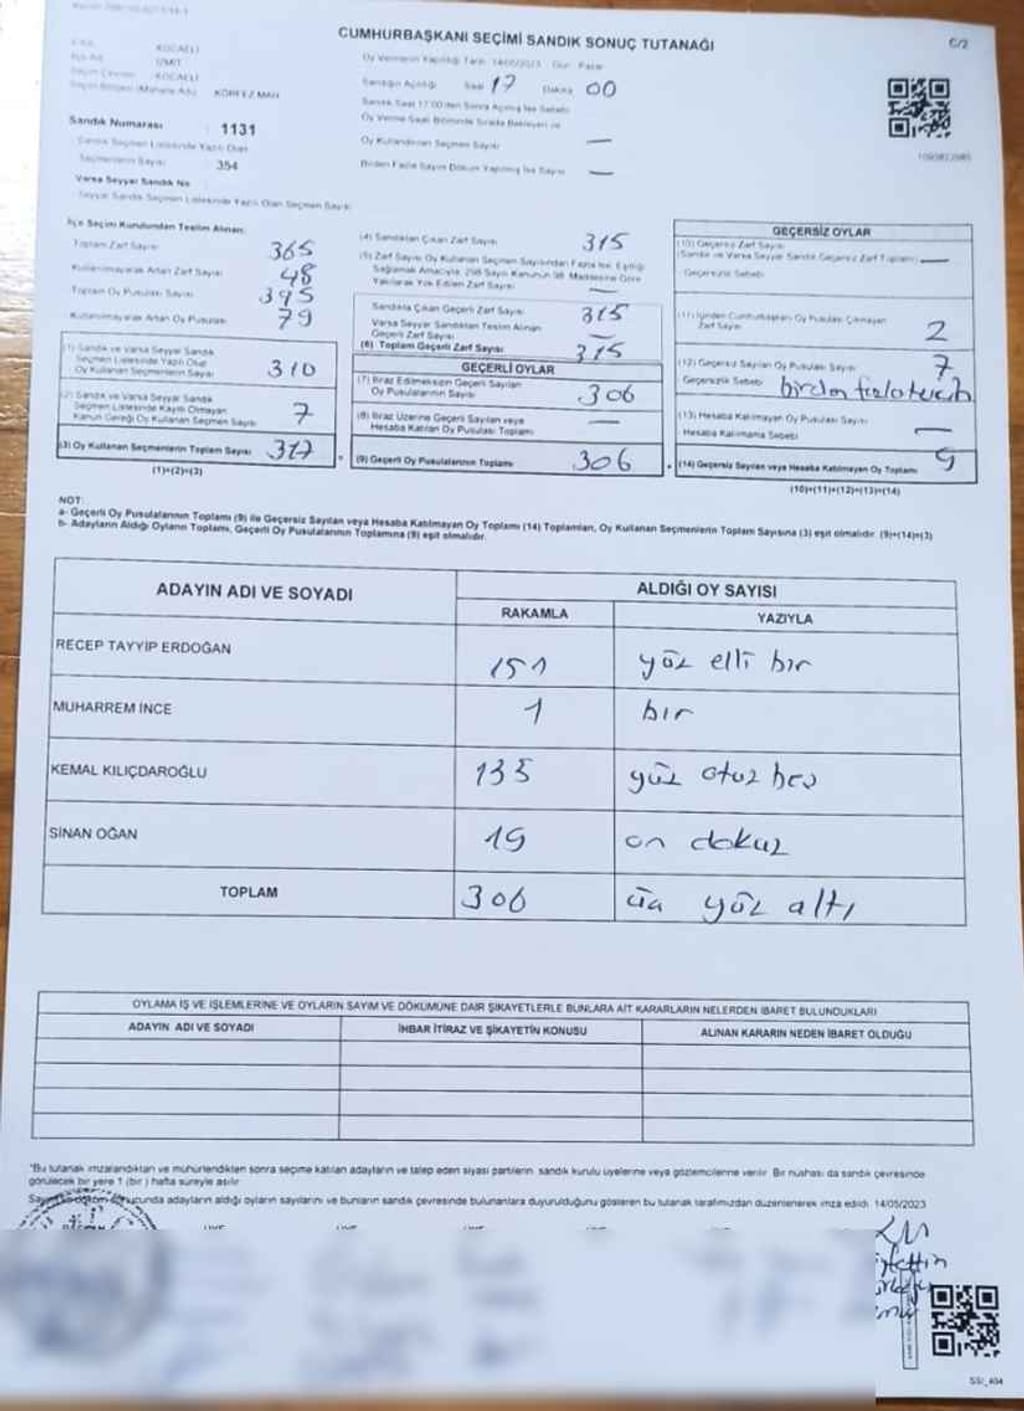 CUMHURBAŞKANI SEÇİMİ SANDIK SONUÇ TUTANAĞI
C/2
KOCAELİ
İZMİT
KOCAELİ
KÖRFEZ MAH
Sandık Numarası 1131
Sandık Seçmen Listesinde Yazılı Olan
Seçmenlerin Sayısı 354
Varsa Seyyar Sandık No
Seyyar Sandık Seçmen Listesinde Yazılı Olan Seçmen Sayısı
Oy Vermenin Yapıldığı Tarih: 14/05/2023 Gün: Pazar
Sandığın Açıldığı Saat 17 Dakika 00
Oy Kullandırılan Seçmen Sayısı —
Birden Fazla Sayım Döküm Yapılmış İse Sayısı —
İlçe Seçim Kurulundan Teslim Alınan:
Toplam Zarf Sayısı 365
Kullanılmayarak Artan Zarf Sayısı 48
Toplam Oy Pusulası Sayısı 395
Kullanılmayarak Artan Oy Pusulası 79
(1) Sandık ve Varsa Seyyar Sandık
Seçmen Listesinde Yazılı Olup
Oy Kullanan Seçmenlerin Sayısı 310
(2) Sandık ve Varsa Seyyar Sandık
Seçmen Listesinde Kaydı Olmayan
Kanun Gereği Oy Kullanan Seçmen Sayısı 7
(3) Oy Kullanan Seçmenlerin Toplam Sayısı 317
(1)+(2)=(3)
(4) Sandıktan Çıkan Zarf Sayısı 315
(5) Zarf Sayısı Oy Kullanan Seçmen Sayısından Fazla İse, Eşitliği
Sağlamak Amacıyla, 298 Sayılı Kanunun 98. Maddesine Göre
Yakılarak Yok Edilen Zarf Sayısı —
Sandıkta Çıkan Geçerli Zarf Sayısı 315
Varsa Seyyar Sandıktan Teslim Alınan
Geçerli Zarf Sayısı —
(6) Toplam Geçerli Zarf Sayısı 315
GEÇERLİ OYLAR
(7) İtiraz Edilmeksizin Geçerli Sayılan
Oy Pusulalarının Sayısı 306
(8) İtiraz Üzerine Geçerli Sayılan veya
Hesaba Katılan Oy Pusulası Toplamı —
(9) Geçerli Oy Pusulalarının Toplamı 306
GEÇERSİZ OYLAR
(10) Geçersiz Zarf Sayısı
(Sandık ve Varsa Seyyar Sandık Geçersiz Zarf Toplamı) —
Geçersizlik Sebebi
(11) İçinden Cumhurbaşkanı Oy Pusulası Çıkmayan
Zarf Sayısı 2
(12) Geçersiz Sayılan Oy Pusulası Sayısı 7
Geçersizlik Sebebi birden fazla tercih
(13) Hesaba Katılmayan Oy Pusulası Sayısı —
Hesaba Katılmama Sebebi
(14) Geçersiz Sayılan veya Hesaba Katılmayan Oy Toplamı 9
(10)+(11)+(12)+(13)=(14)
NOT:
a- Geçerli Oy Pusulalarının Toplamı (9) ile Geçersiz Sayılan veya Hesaba Katılmayan Oy Toplamı (14) Toplamları, Oy Kullanan Seçmenlerin Toplam Sayısına (3) eşit olmalıdır. (9)+(14)=(3)
b- Adayların Aldığı Oyların Toplamı, Geçerli Oy Pusulalarının Toplamına (9) eşit olmalıdır.
ADAYIN ADI VE SOYADI
ALDIĞI OY SAYISI
RAKAMLA YAZIYLA
RECEP TAYYİP ERDOĞAN 151 yüz elli bir
MUHARREM İNCE 1 bir
KEMAL KILIÇDAROĞLU 135 yüz otuz beş
SİNAN OĞAN 19 on dokuz
TOPLAM 306 üç yüz altı
OYLAMA İŞ VE İŞLEMLERİNE VE OYLARIN SAYIM VE DÖKÜMÜNE DAİR ŞİKAYETLERLE BUNLARA AİT KARARLARIN NELERDEN İBARET BULUNDUKLARI
ADAYIN ADI VE SOYADI İHBAR İTİRAZ VE ŞİKAYETİN KONUSU ALINAN KARARIN NEDEN İBARET OLDUĞU
*Bu tutanak imzalandıktan ve mühürlendikten sonra seçime katılan adayların ve talep eden siyasi partilerin sandık kurulu üyelerine veya gözlemcilerine verilir. Bir nüshası da sandık çevresinde
görülecek bir yere 1 (bir) hafta süreyle asılır
Sayım döküm sonucunda adayların aldığı oyların sayılarını ve bunların sandık çevresinde bulunanlara duyurulduğunu gösteren bu tutanak tarafımızdan düzenlenerek imza edildi. 14/05/2023